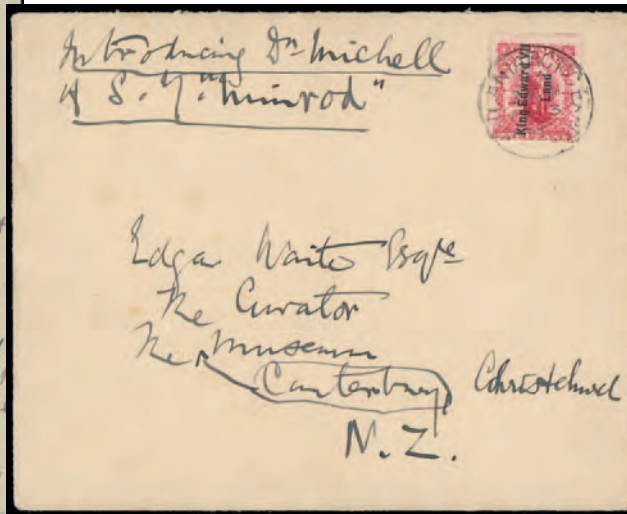 Introducing Dr Michell
of S.Y. "Nimrod"
King Edward VII
Land
Edgar Waite Esqre
The Curator
The Museum
Canterbury Christchurch
N.Z.